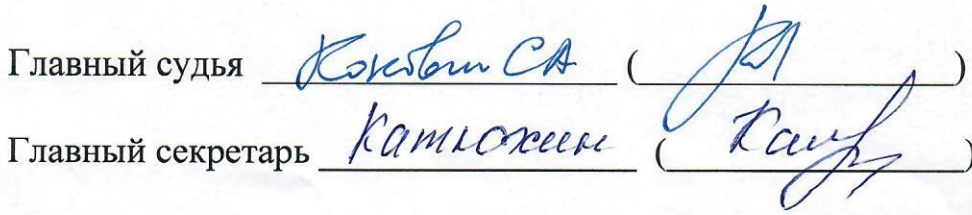 Главный судья Коковин СА ( )
Главный секретарь Катюхин ( )